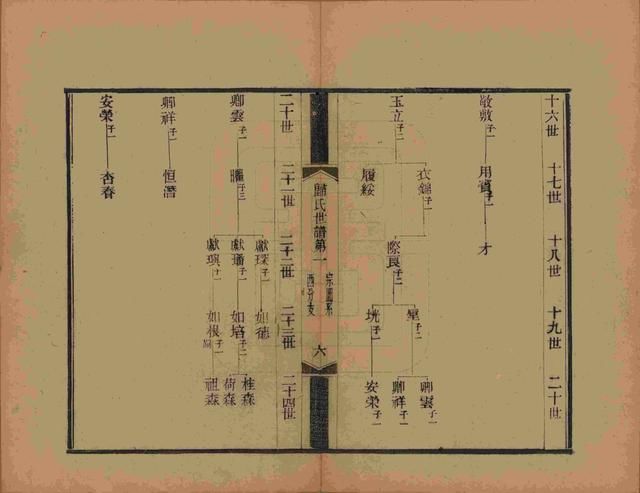 十六世 十七世 十八世 十九世 二十世
敬敷子一 用賓子一 才
玉立子二
衣錦子一 際良子二 堃子二 卿雲子一
卿祥子一
垙子一 安榮子一
履綏
氏世譜第一 宗圖系 西分支 六
二十世 二十一世 二十二世 二十三世 二十四世
卿雲子一 子三 獻琛子一 如德
獻璠子一 如培子二 桂森
荷森
獻興子一 如根子一 祖森
卿祥子一 恒潛
安榮子一 杏春